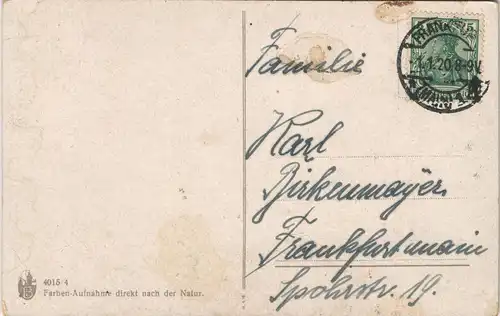 4015/4
Farben-Aufnahme direkt nach der Natur.
5
FRANKFURT
1.1.20.8-9V.
(MAIN)
Familie
Karl
Birkenmayer
Frankfurtmain
Spohrstr. 19.